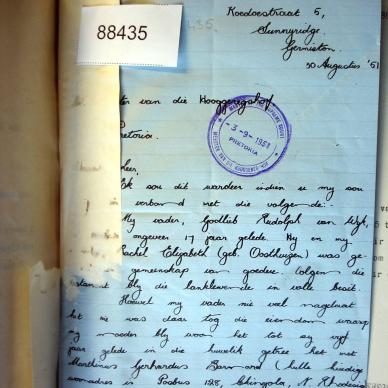 88435
Koedoestraat 5,
Sunnyridge,
Germiston.
30 Augustus '51
van die Hooggeregshof
3-9-1951
PRETORIA
Pretoria.
Ek sou dit waardeer indien u my sou
verband met die volgende:-
My vader, Godlieb Rudolph van Wyk,
ongeveer 17 jaar gelede. Hy en my
Rachel Elizabeth (geb. Oosthuizen) was
gemeenskap van goedere. Volgens die
testament bly die langslewende in volle besit.
Hoewel my vader nie veel nagelaat
het nie was daar tog die eiendom waarop
my moeder bly woon het tot sy
jaar gelede in die huwelik getree het met
Marthinus Gerhardus Barnard (hulle huidige
woonadres is Posbus 198, Chingola, N. Rhodesia